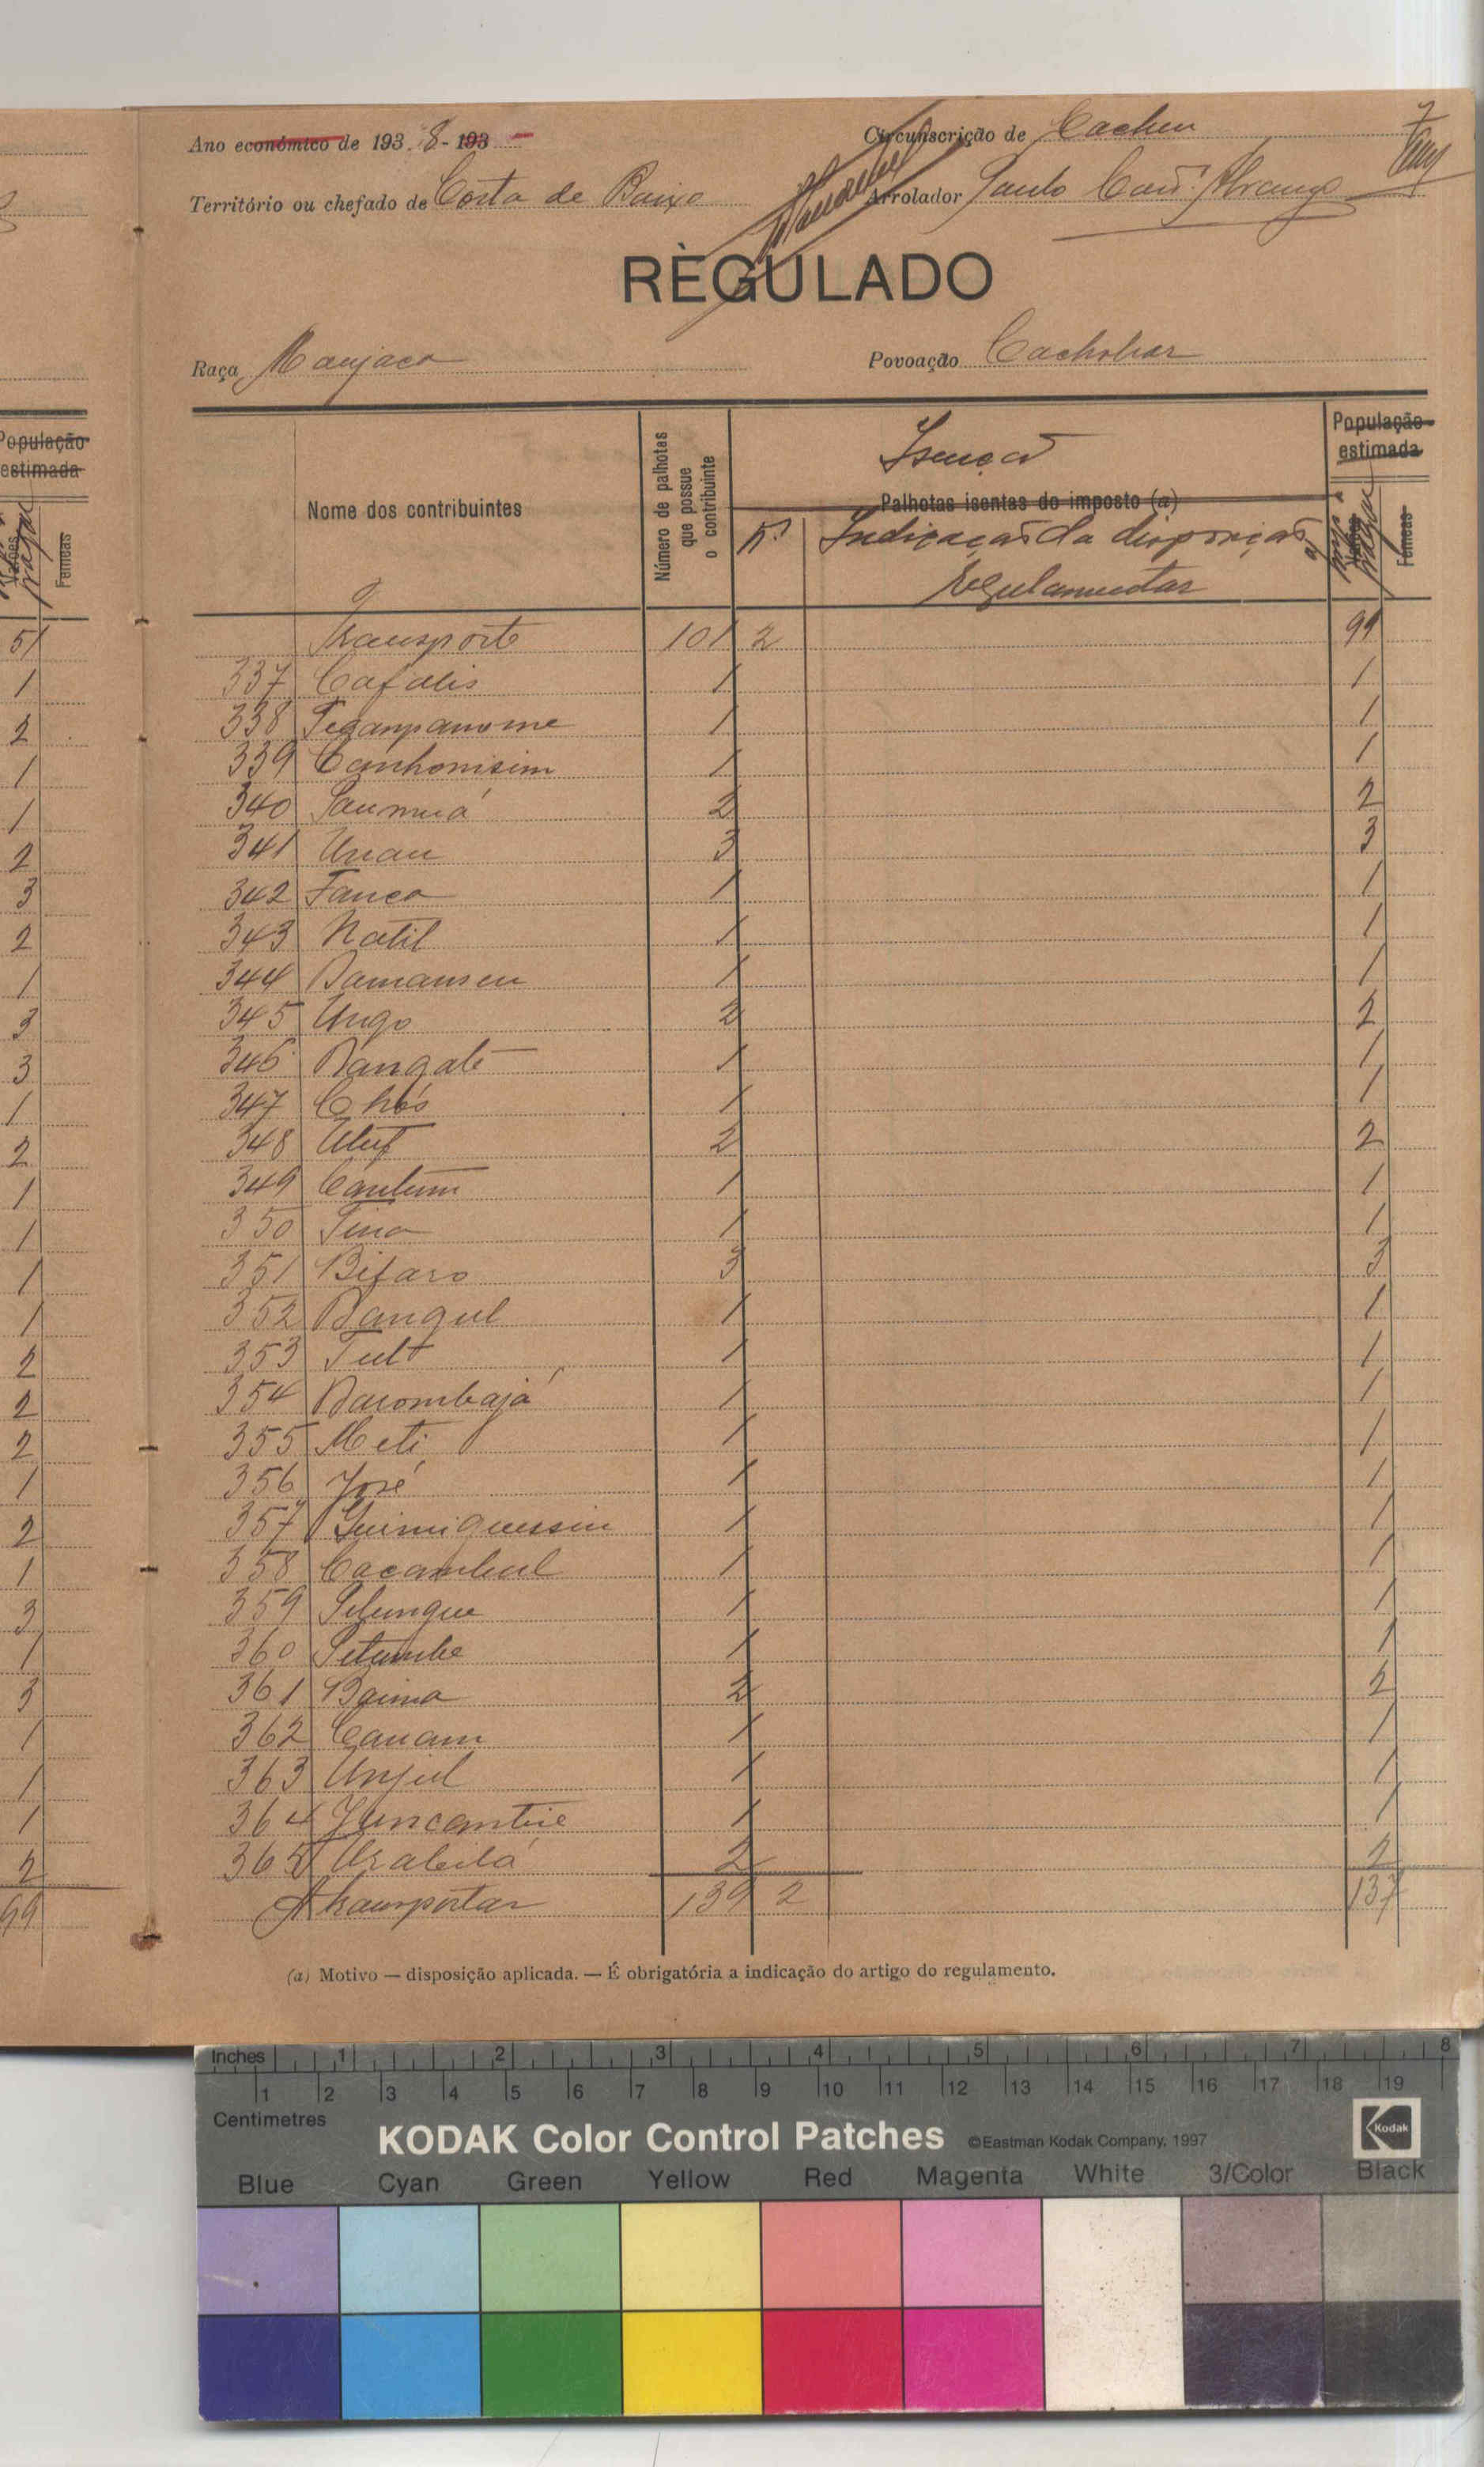 Ano económico de 193 8 - 193
Circunscrição de Cacheu
7
Território ou chefado de Costa de Baixo
Arrolador Paulo
REGULADO
Raça Manjaca
Povoação
Nome dos contribuintes
Número de palhotas que possue o contribuinte
Isenção
Palhotas isentas do imposto (a)
N.º
Indicação da disposição a)
regulamentar
População estimada
Varões
pagar
Fêmeas
População estimada
Varões
pagar
Fêmeas
Transporte 101 2 99
337 Cafalis 1 1
338 1 1
339 Canhomisim 1 1
340 2 2
341 Unau 3 3
342 Fanca 1 1
343 Natil 1 1
344 Damansen 1 1
345 Ungo 2 2
346 1 1
347 Chós 1 1
348 2 2
349 Cantum 1 1
350 1 1
351 Bifaro 3 3
352 Bangul 1 1
353 1 1
354 1 1
355 Meti 1 1
356 José 1 1
357 1 1
358 Cacambul 1 1
359 1 1
360 1 1
361 Baima 2 2
362 Canam 1 1
363 Unjul 1 1
364 1 1
365 2 2
A transportar 139 2 137
51
1
2
1
1
2
3
2
1
3
3
1
2
1
1
1
1
2
2
2
1
2
1
3
1
3
1
1
1
2
99
(a) Motivo — disposição aplicada. — É obrigatória a indicação do artigo do regulamento.
Inches 1 2 3 4 5 6 7 8
1 2 3 4 5 6 7 8 9 10 11 12 13 14 15 16 17 18 19
Centimetres
KODAK Color Control Patches ©Eastman Kodak Company, 1997 Kodak
Blue Cyan Green Yellow Red Magenta White 3/Color Black